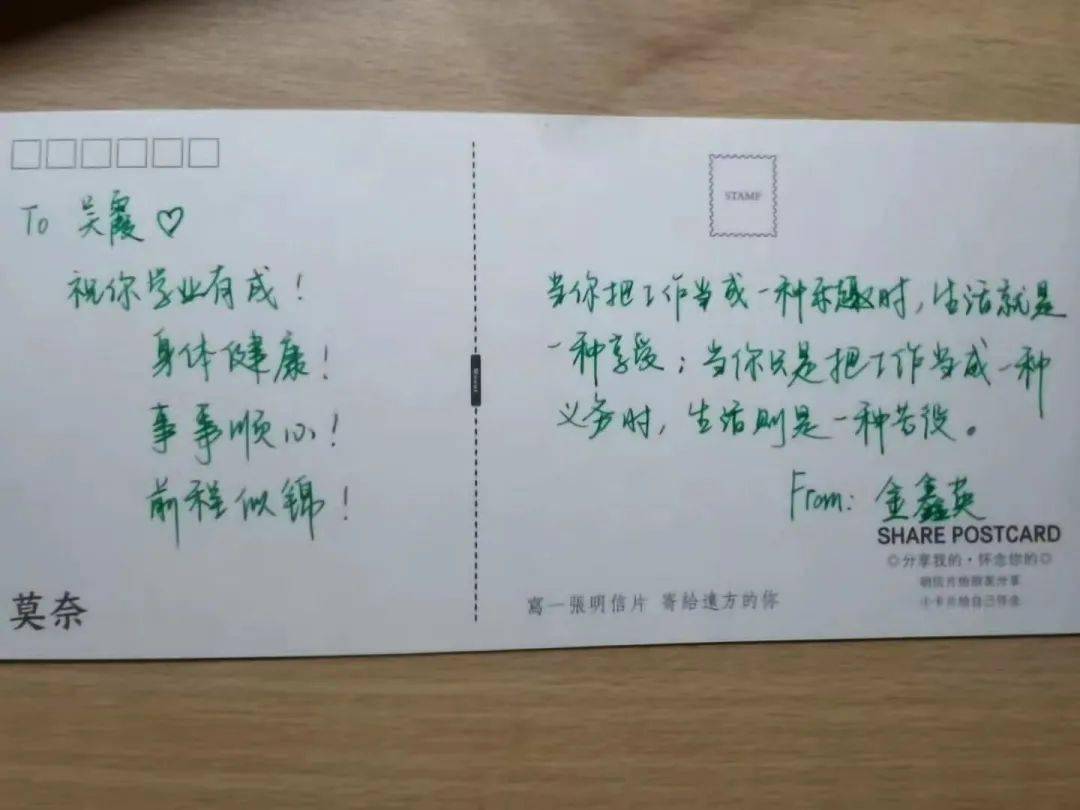 To 吴霞♡
祝你学业有成!
身体健康!
事事顺心!
前程似锦!
莫奈
STAMP
当你把工作当成一种乐趣时,生活就是
一种享受;当你只是把工作当成一种
义务时,生活则是一种苦役。
From: 金鑫英
SHARE POSTCARD
◎分享我的·怀念你的◎
明信片给朋友分享
小卡片给自己怀念
寫一張明信片 寄給遠方的你